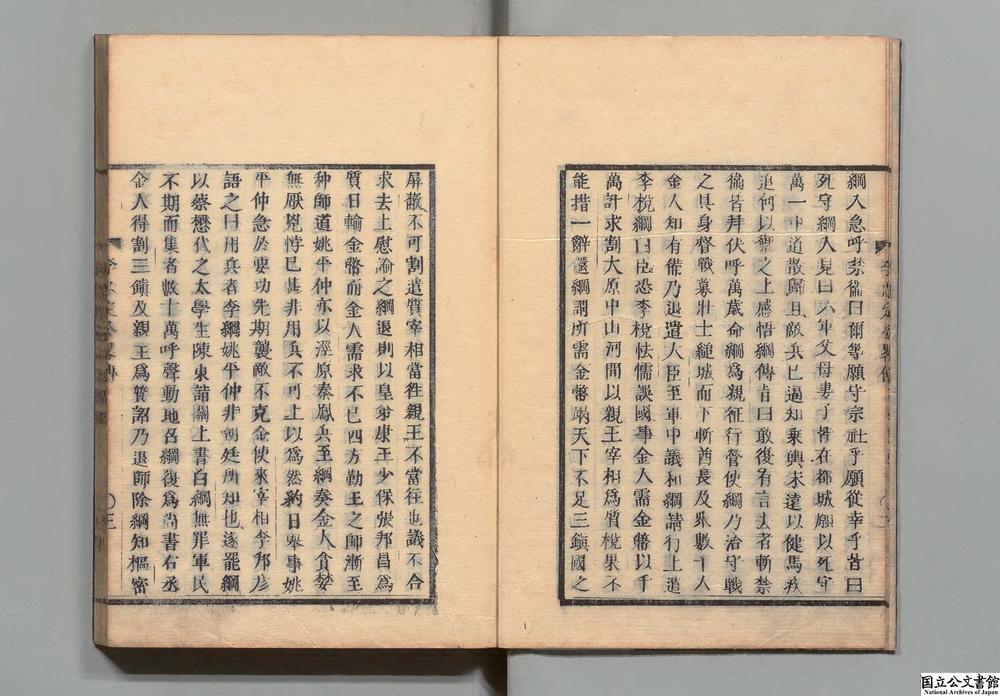 綱入急呼禁衞曰爾等願守宗社乎願從幸乎皆曰
死守綱入見曰六軍父母妻子皆在都城願以死守
萬一中道散歸且敵兵已逼知乘輿未遠以健馬疾
追何以禦之上感悟綱傳旨曰敢復有言去者斬禁
衞皆拜伏呼萬歲命綱爲親征行營使綱乃治守戰
之具身督戰募壯士縋城而下斬酋長及衆數千人
金人知有備乃退遣大臣至軍中議和綱請行上遣
李梲綱曰臣恐李梲怯懦誤國事金人需金幣以千
萬計求割太原中山河間以親王宰相爲質梲果不
能措一辭還綱謂所需金幣竭天下不足三鎭國之
屏蔽不可割遣質宰相當往親王不當往也議不合
求去上慰諭之綱退則以皇弟康王少保張邦昌爲
質日輸金幣而金人需求不已四方勤王之師漸至
种師道姚平仲亦以涇原秦鳳兵至綱奏金人貪婪
無厭兇悖已甚非用兵不可上以爲然約日舉事姚
平仲急於要功先期襲敵不克金使來宰相李邦彥
語之曰用兵者李綱姚平仲非朝廷所知也遂罷綱
以蔡懋代之太學生陳東詣闕上書白綱無罪軍民
不期而集者數十萬呼聲動地召綱復爲尚書右丞
金人得割三鎭及親王爲質詔乃退師除綱知樞密
三
国立公文書館
National Archives of Japan